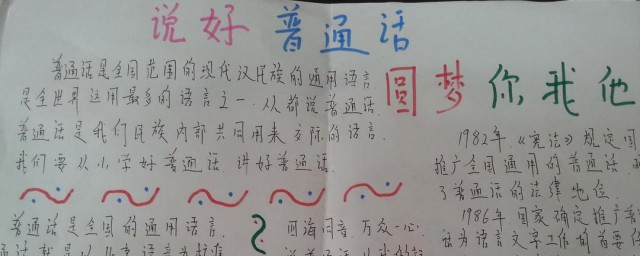 说好普通话
圆梦你我他
普通话是全国范围的现代汉民族的通用语言
是全世界运用最多的语言之一,从都说普通话.
普通话是我们民族内部共同用来交际的语言.
我们要从小学好普通话.讲好普通话.
普通话是全国的通用语言.
四海同音.万众一心.
1982年,《宪法》规定国
推广全国通用的普通话
了普通话的法律地位.
1986年国家确定推广普
话为语言文字工作的首要任